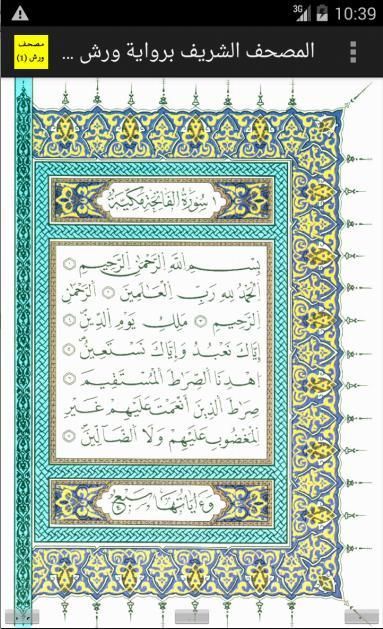 3G 10:39
المصحف الشريف برواية ورش ...
مصحف
ورش (1)
سورة الفاتحة مكية
بسم الله الرحمن الرحيم
الحمد لله رب العالمين الرحمن
الرحيم ملك يوم الدين
إياك نعبد وإياك نستعين
اهدنا الصراط المستقيم
صراط الذين أنعمت عليهم غير
المغضوب عليهم ولا الضالين
وءاياتها سبع